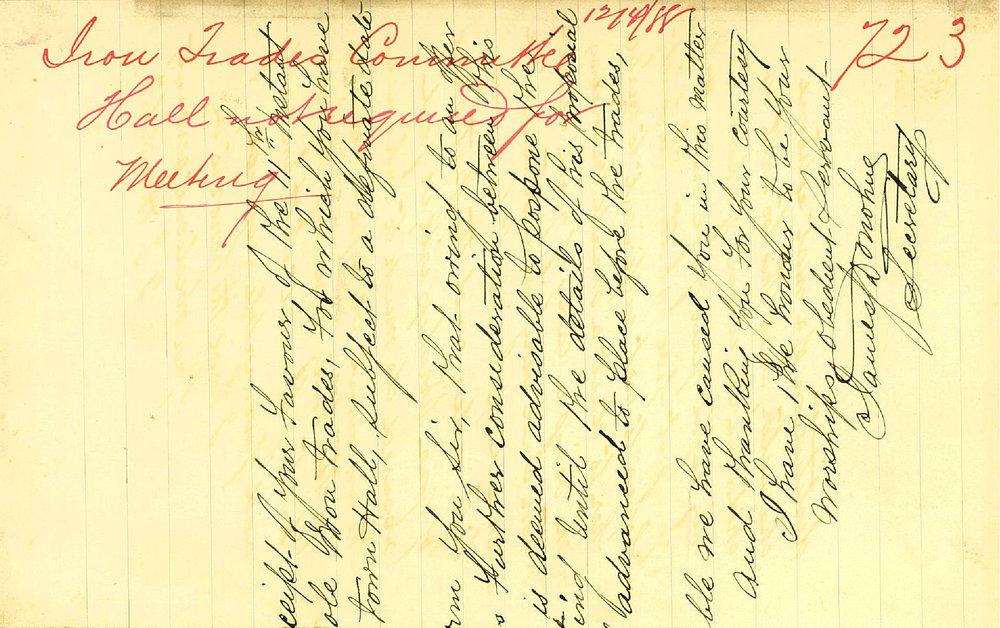 12/14/88
723
Iron Trades Committee
Hall not required for
Meeting
ceipt of Your Favour of the 11th instant
ole Iron trades, for which you have
town Hall, subject to a definate date
rm You Sir, that owing to an
s Further consideration between this
is deemed advisable to pospone the
end until the details of this proposal
advanced to place before the trades,
ble we have caused You in this matter
and thanking You for Your courtesy
I have the honour to be Your
Worships obedient Servant
James Donohue
Secretary